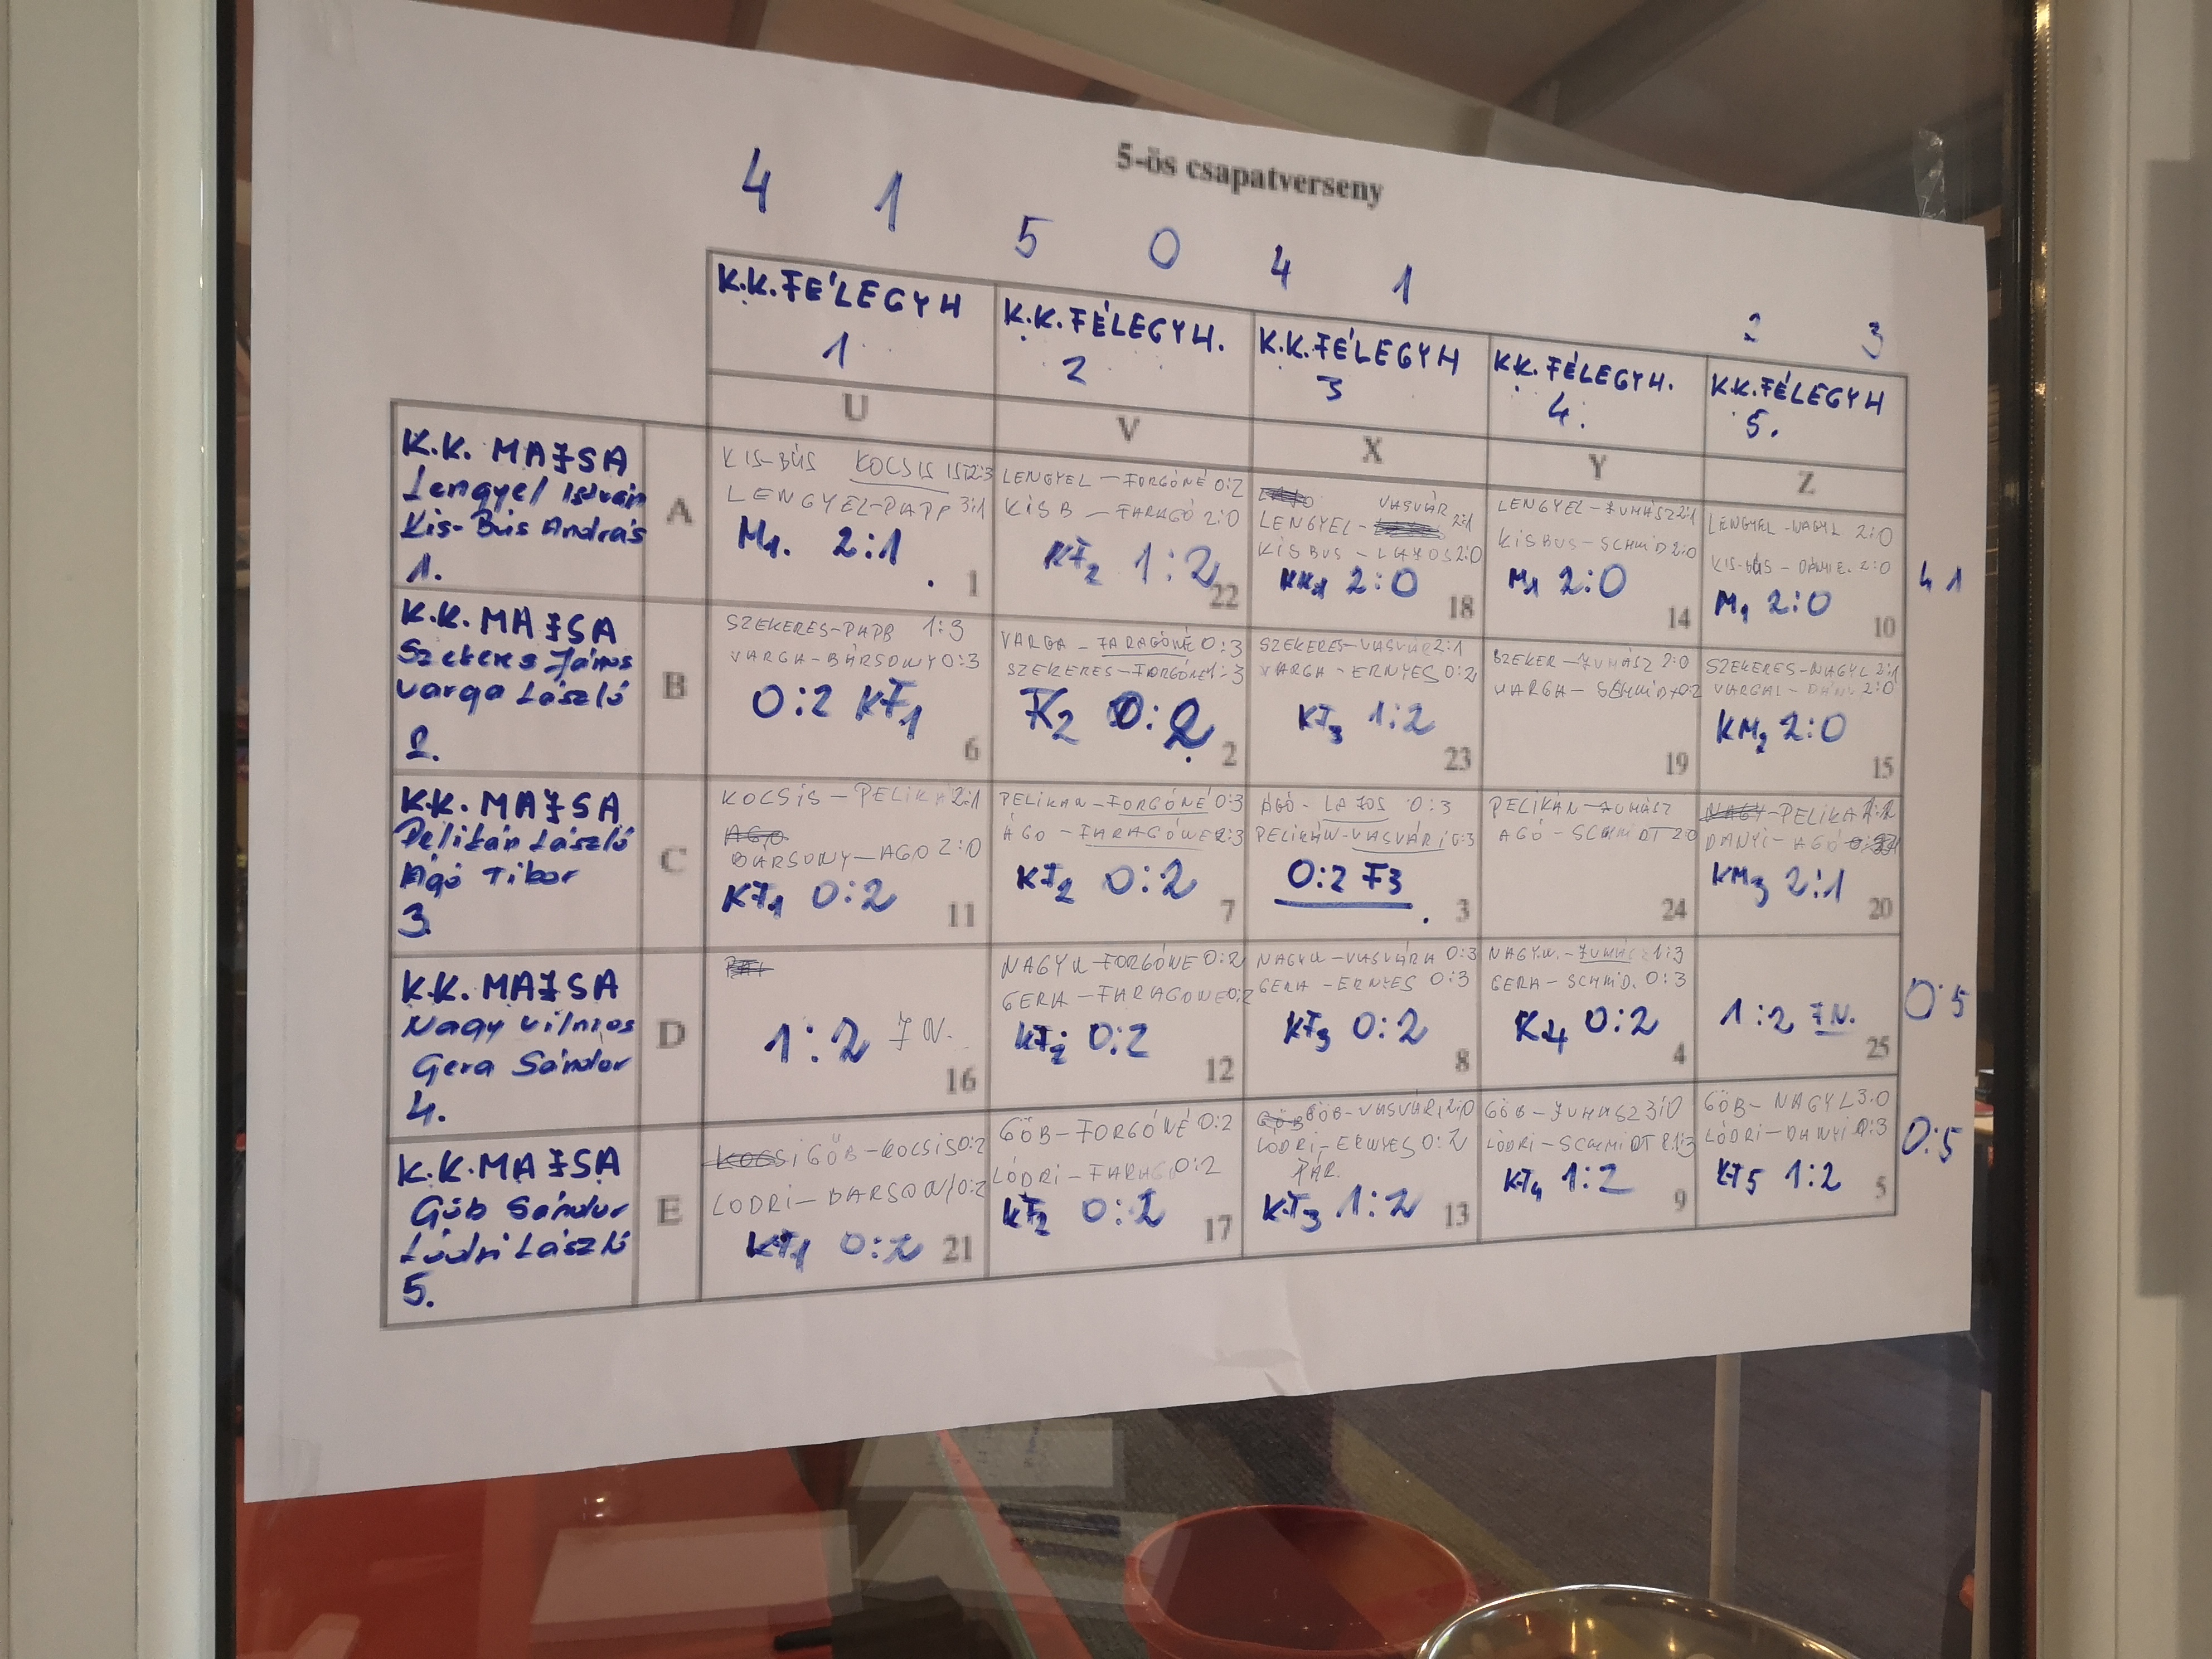 5-ös csapatverseny
4 1 5 0 4 1 2 3
K.K. FÉLEGYH
1
K.K. FÉLEGYH.
2
K.K. FÉLEGYH
3
KK. FÉLEGYH.
4.
K.K. FÉLEGYH
5.
U V X Y Z
K.K. MAJSA
Lengyel István
Kis-Bús András
1.
A
KIS-BÚS KOCSIS IST 2:3
LENGYEL-PAPP 3:1
M1. 2:1
1
LENGYEL - FORGÓNÉ 0:2
KIS B - FARAGÓ 2:0
KF2 1:2
22
VASVÁR
LENGYEL- 2:1
KISBUS - LAJOS 2:0
2:0
18
LENGYEL-JUHÁSZ 2:1
KISBUS-SCHMID 2:0
M1 2:0
14
LENGYEL-NAGYL 2:0
KIS-BÚS - DÁNYI E. 2:0
M1 2:0
10
4 1
K.K. MAJSA
Szekeres János
Varga László
2.
B
SZEKERES-PAPP 1:3
VARGA-BÁRSONY 0:3
0:2 KF1
6
VARGA - FARAGÓNÉ 0:3
SZEKERES-FORGÓNÉ 1:3
F2 0:2
2
SZEKERES-VASVÁR 2:1
VARGA - ERNYES 0:2
KF3 1:2
23
SZEKER-JUHÁSZ 2:0
VARGA-SCHMIDT 0:2
19
SZEKERES-NAGYL 2:1
VARGAL-DÁNYI 2:0
KM2 2:0
15
K.K. MAJSA
Pelikán László
Ágó Tibor
3.
C
KOCSIS - PELIKÁ 2:1
AGO
BÁRSONY-AGO 2:0
KF1 0:2
11
PELIKÁN-FORGÓNÉ 0:3
ÁGO - FARAGÓNÉ 2:3
KF2 0:2
7
ÁGÓ- LAJOS 0:3
PELIKÁN-VASVÁRI 0:3
0:2 F3
3
PELIKÁN-JUHÁSZ
AGÓ-SCHMIDT 2:0
24
NAGY-PELIKÁ
DANYI-AGÓ
KM3 2:1
20
K.K. MAJSA
Nagy Vilmos
Gera Sándor
4.
D
1:2 JN.
16
NAGYV-FORGÓNÉ 0:2
GERA-FARAGONE 0:2
KF2 0:2
12
NAGYV-VASVÁRI 0:3
GERA-ERNYES 0:3
KF3 0:2
8
NAGYV.-JUHÁSZ 1:3
GERA-SCHMID. 0:3
K4 0:2
4
1:2 JN.
25
0:5
K.K. MAJSA
Göb Sándor
Lódri László
5.
E
KOCSI GÖB-KOCSIS 0:2
LODRI-BARSONY 0:2
KF1 0:2
21
GÖB-FORGÓNÉ 0:2
LÓDRI-FARAG 0:2
KF2 0:2
17
GÖB GÖB-VASVÁRI 2:0
LÓDRI-ERNYES 0:2
PÁR.
KF3 1:2
13
GÖB-JUHÁSZ 3:0
LÓDRI-SCHMIDT 1:3
KF4 1:2
9
GÖB- NAGYL 3:0
LÓDRI-DANYI 0:3
KF5 1:2
5
0:5